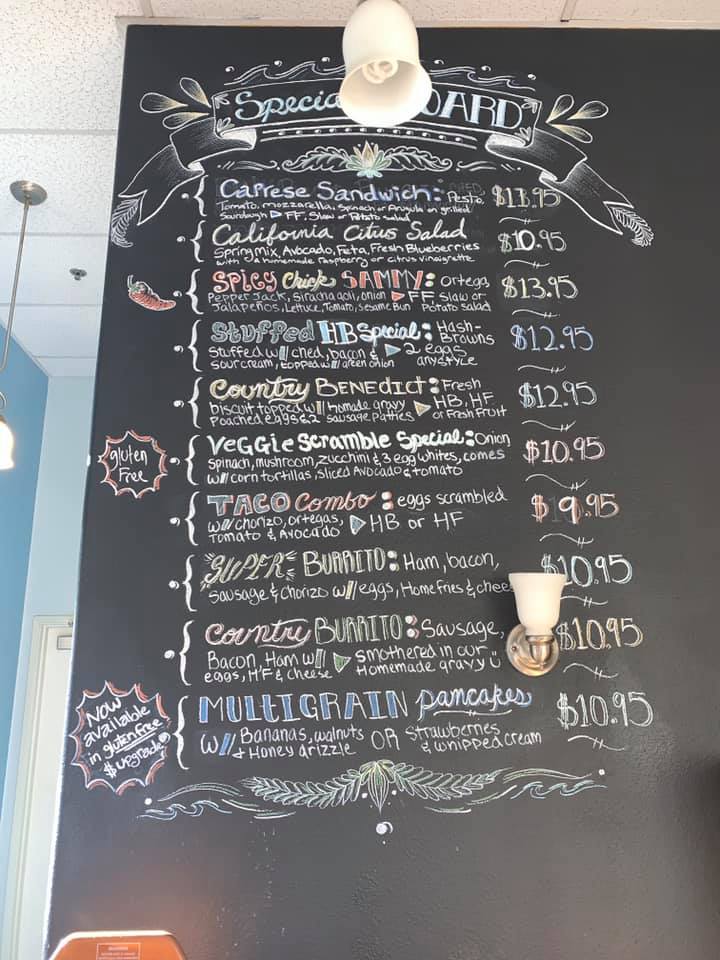 Specia OARD
Caprese Sandwich: Pesto, $13.95
Tomato, mozzarella, Spinach or Arugula on grilled
Sourdough ▷ FF, Slaw or Potato salad
California Citrus Salad $10.95
Spring mix, Avocado, Feta, Fresh Blueberries
with a homemade raspberry or citrus vinaigrette
SPICY Chick SAMMY: Ortega, $13.95
Pepper Jack, Siracha aoli, onion ▷ FF Slaw or
Jalapeños, Lettuce, Tomato, Sesame Bun Potato salad
Stuffed HB Special: Hash- $12.95
Browns
Stuffed w// ched, bacon & ▷ 2 eggs
sour cream, topped w// green onion any style
Country BENEDICT: Fresh $12.95
biscuit topped w// homade gravy ▷ HB, HF
Poached eggs & 2 sausage patties or Fresh Fruit
gluten
Free
VeGGie Scramble Special: Onion $10.95
Spinach, mushroom, zucchini & 3 egg whites, comes
w// corn tortillas, sliced Avocado & tomato
TACO Combo: eggs scrambled $9.95
w// chorizo, ortegas, ▷ HB or HF
Tomato & Avocado
SUPER BURRITO: Ham, bacon, $10.95
Sausage & chorizo w// eggs, Home fries & chees
Country BURRITO: Sausage, $10.95
Bacon, Ham w// ▷ smothered in our
eggs, HF & cheese Homemade gravy
NOW
available
in gluten free
$ upgrade
MULTIGRAIN pancakes $10.95
w// Bananas, walnuts OR Strawberries
& Honey drizzle & whipped cream